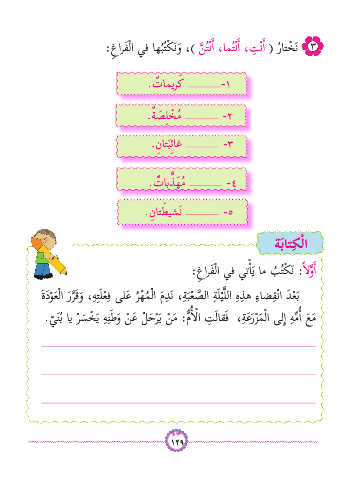 ٣ نَخْتارُ ( أَنْتِ، أَنْتُما، أَنْتُنَّ )، وَنَكْتُبُها في الْفَراغِ:
١- ............ كَريماتٌ.
٢- ............ مُخْلِصَةٌ.
٣- ............ غائِبَتانِ.
٤- ............ مُهَذَّباتٌ.
٥- ............ نَشيطَتانِ.
الْكِتابَة
أَوَّلاً: نَكْتُبُ ما يَأْتي في الْفَراغِ:
بَعْدَ انْقِضاءِ هذِهِ اللَّيْلَةِ الصَّعْبَةِ، نَدِمَ الْمُهْرُ عَلى فِعْلَتِهِ، وَقَرَّرَ الْعَوْدَةَ
مَعَ أُمِّهِ إِلى الْمَزْرَعَةِ، فَقالَتِ الْأُمُّ: مَنْ يَرْحَلْ عَنْ وَطَنِهِ يَخْسَرْ يا بُنَيّ.
١٢٩